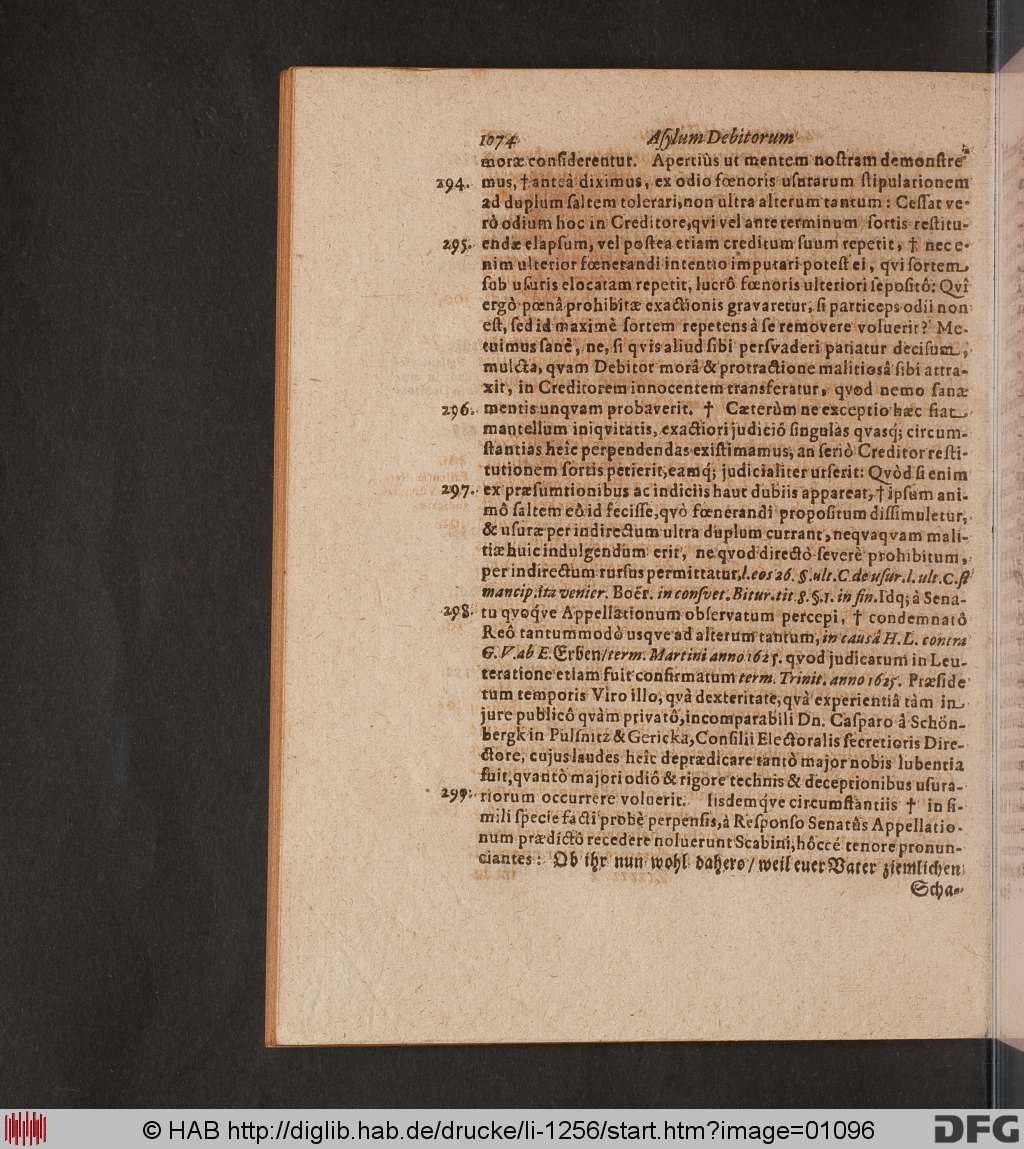 1074 Aſylum Debitorum
moræ conſiderentur. Apertiùs ut mentem noſtram demonſtre-
294. mus, † anteà diximus, ex odio fœnoris uſurarum ſtipulationem
ad duplum ſaltem tolerari, non ultra alterum tantum: Ceſſat ve-
rò odium hoc in Creditore, qvi vel ante terminum ſortis reſtitu-
295. endæ elapſum, vel poſtea etiam creditum ſuum repetit, † nec e-
nim ulterior fœnerandi intentio imputari poteſt ei, qvi ſortem
ſub uſuris elocatam repetit, lucrô fœnoris ulteriori ſepoſitô: Qvî
ergò pœnâ prohibitæ exactionis gravaretur, ſi particeps odii non
eſt, ſed id maximè ſortem repetens à ſe removere voluerit? Me-
tuimus ſanè, ne, ſi qvis aliud ſibi perſvaderi patiatur deciſum,
mulcta, qvam Debitor morâ & protractione malitiosâ ſibi attra-
xit, in Creditorem innocentem transferatur, qvod nemo ſanæ
296. mentis unqvam probaverit. † Cæterùm ne exceptio hæc fiat
mantellum iniqvitatis, exactiori judiciô ſingulas qvasq; circum-
ſtantias heîc perpendendas exiſtimamus, an ſeriò Creditor reſti-
tutionem ſortis petierit, eamq; judicialiter urſerit: Qvòd ſi enim
297. ex præſumtionibus ac indiciis haut dubiis appareat, † ipſum ani-
mô ſaltem eô id feciſſe, qvò fœnerandi propoſitum diſſimuletur,
& uſuræ per indirectum ultra duplum currant, neqvaqvam mali-
tiæ huic indulgendum erit, ne qvod directò ſeverè prohibitum,
per indirectum rurſus permittatur, l. eos 26. §. ult. C. de uſur. l. ult. C. ſi
mancip. ita venier. Boër. in conſvet. Bitur. tit. 8. §. 1. in fin. Idq; à Sena-
298. tu qvoq́ve Appellationum obſervatum percepi, † condemnatô
Reô tantummodò usqve ad alterum tantum, in causâ H. L. contra
G. V. ab E. Erben/ term. Martini anno 1625. qvod judicatum in Leu-
teratione etiam fuit confirmatum term. Trinit. anno 1625. Præſide
tum temporis Viro illo, qvà dexteritate, qvà experientiâ tàm in
jure publicô qvàm privatô, incomparabili Dn. Caſparo â Schön-
bergk in Pulſnitz & Gericka, Conſilii Electoralis ſecretioris Dire-
ctore, cujus laudes heîc deprædicare tantò major nobis lubentia
fuit, qvantò majori odiô & rigore technis & deceptionibus uſura-
299. riorum occurrere voluerit. Iisdemq́ve circumſtantiis † in ſi-
mili ſpecie facti probè perpenſis, à Reſponſo Senatûs Appellatio-
num prædictô recedere noluerunt Scabini, hôccé tenore pronun-
ciantes: Ob ihr nun wohl dahero/ weil euer Vater ziemlichen
Scha-
© HAB http://diglib.hab.de/drucke/li-1256/start.htm?image=01096
DFG